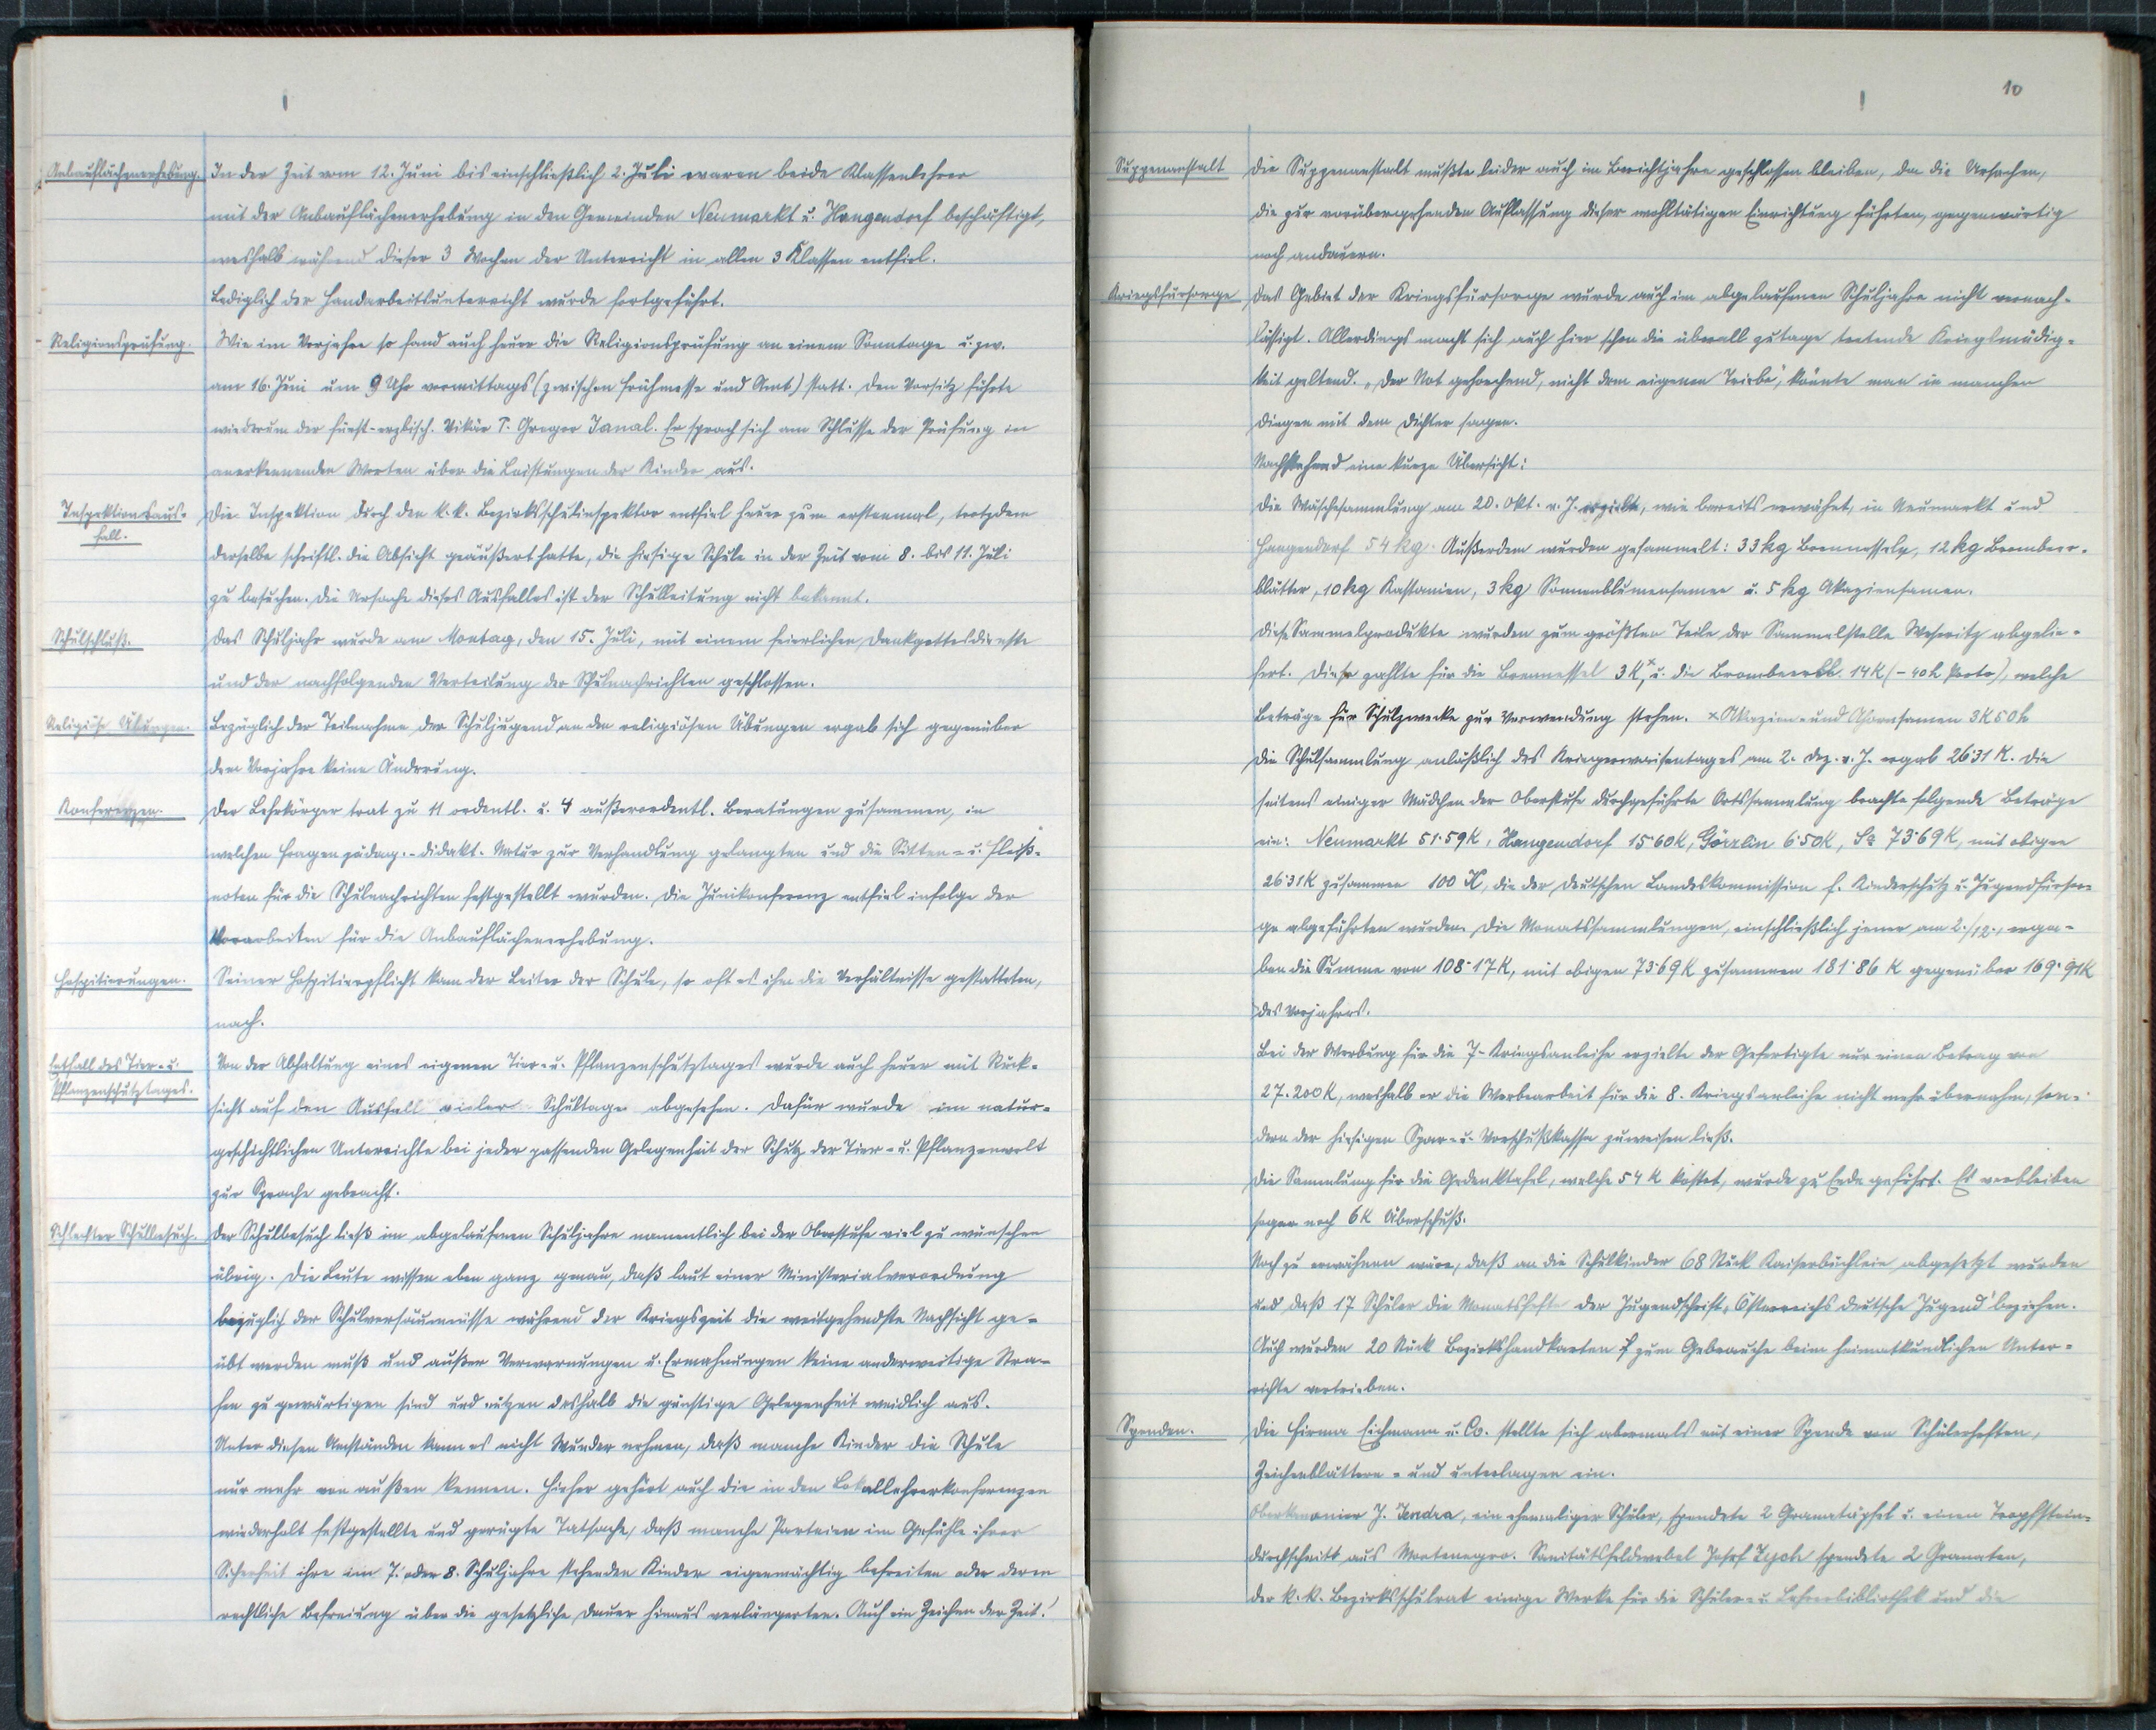 Anbauflächenerhebung.
In der Zeit vom 12. Juni bis einschließlich 2. Juli waren beide Klassenlehrer
mit der Anbauflächenerhebung in den Gemeinden Neumarkt u. Hangendorf beschäftigt,
weshalb während dieser 3 Wochen der Unterricht in allen 3 Klassen entfiel.
Lediglich der Handarbeitsunterricht wurde fortgeführt.
Religionsprüfung.
Wie im Vorjahre so fand auch heuer die Religionsprüfung an einem Sonntage u. zw.
am 16. Juni um 9 Uhr vormittags (zwischen Frühmesse und Amt) statt. Den Vorsitz führte
wiederum der fürst-erzbisch. Vikär P. Gregor Janal. Er sprach sich am Schlusse der Prüfung in
anerkennenden Worten über die Leistungen der Kinder aus.
Inspektionsaus-
fall.
Die Inspektion durch den k. k. Bezirksschulinspektor entfiel heuer zum erstenmal, trotzdem
derselbe schriftl. die Absicht geäußert hatte, die hiesige Schule in der Zeit vom 8. bis 11. Juli
zu besuchen. Die Ursache dieses Ausfalles ist der Schulleitung nicht bekannt.
Schulschluß.
Das Schuljahr wurde am Montag, den 15. Juli, mit einem feierlichen Dankgottesdienste
und der nachfolgenden Verteilung der Schulnachrichten geschlossen.
Religiöse Übungen.
Bezüglich der Teilnahme der Schuljugend an den religiösen Übungen ergab sich gegenüber
dem Vorjahre keine Änderung.
Konferenzen.
Der Lehrkörper trat zu 11 ordentl. u. 4 außerordentl. Beratungen zusammen, in
welchen Fragen pädag.-didakt. Natur zur Verhandlung gelangten und die Sitten- u. Fleiß-
noten für die Schulnachrichten festgestellt wurden. Die Junikonferenz entfiel infolge der
Vorarbeiten für die Anbauflächenerhebung.
Hospitierungen.
Seiner Hospitierpflicht kam der Leiter der Schule, so oft es ihm die Verhältnisse gestatteten,
nach.
Entfall des Tier- u.
Pflanzenschutztages.
Von der Abhaltung eines eigenen Tier- u. Pflanzenschutztages wurde auch heuer mit Rück-
sicht auf den Ausfall vieler Schultage abgesehen. Dafür wurde im natur-
geschichtlichen Unterrichte bei jeder passenden Gelegenheit der Schutz der Tier- u. Pflanzenwelt
zur Sprache gebracht.
Schlechter Schulbesuch.
Der Schulbesuch ließ im abgelaufenen Schuljahre namentlich bei der Oberstufe viel zu wünschen
übrig. Die Leute wissen eben ganz genau, daß laut einer Ministerialverordnung
bezüglich der Schulversäumnisse während der Kriegszeit die weitgehendste Nachsicht ge-
übt werden muß und außer Verwarnungen u. Ermahnungen keine anderweitige Stra-
fen zu gewärtigen sind und nützen deshalb die günstige Gelegenheit weidlich aus.
Unter diesen Umständen kann es nicht Wunder nehmen, daß manche Kinder die Schule
nur mehr von außen kennen. Hieher gehört auch die in den Lokallehrerkonferenzen
wiederholt festgestellte und gerügte Tatsache, daß manche Parteien im Gefühle ihrer
Sicherheit ihre im 7. oder 8. Schuljahre stehenden Kinder eigenmächtig befreiten oder deren
rechtliche Befreiung über die gesetzliche Dauer hinaus verlängerten. Auch ein Zeichen der Zeit!
10
Suppenanstalt
Die Suppenanstalt mußte leider auch im Berichtjahre geschlossen bleiben, da die Ursachen,
die zur vorübergehenden Auflassung dieser wohltätigen Einrichtung führten, gegenwärtig
noch andauern.
Kriegsfürsorge
Das Gebiet der Kriegsfürsorge wurde auch im abgelaufenen Schuljahre nicht vernach-
lässigt. Allerdings macht sich auch hier schon die überall zutage tretende Kriegsmüdig-
keit geltend. „Der Not gehorchend, nicht dem eigenen Triebe", könnte man in manchen
Dingen mit dem Dichter sagen.
Nachstehend eine kurze Übersicht:
Die Wäschesammlung am 20. Okt. v. J. erzielte, wie bereits erwähnt, in Neumarkt und
Hangendorf 54 kg. Außerdem wurden gesammelt: 33 kg Brennesseln, 12 kg Brombeer-
blätter, 10 kg Kastanien, 3 kg Sonnenblumensamen u. 5 kg Akaziensamen.
Diese Sammelprodukte wurden zum größten Teile der Sammelstelle Weseritz abgelie-
fert. Diese zahlte für die Brennessel 3 K,× u. die Brombeerbl. 14 K (- 40 h Porto), welche
Beträge für Schulzwecke zur Verwendung stehen. × Akazien- und Ahornsamen 3 K 50 h
Die Schulsammlung anläßlich des Kriegerwaisentages am 2. Dez. v. J. ergab 26·31 K. Die
seitens einiger Mädchen der Oberstufe durchgeführte Ortssammlung brachte folgende Beträge
ein: Neumarkt 51·59 K, Hangendorf 15·60 K, Görzlin 6·50 K, Sa 73·69 K, mit obigen
26·31 K zusammen 100 K, die der Deutschen Landeskommission f. Kinderschutz u. Jugendfürsor-
ge abgeführten wurden. Die Monatssammlungen, einschließlich jener am 2./12., erga-
ben die Summe von 108·17 K, mit obigen 73·69 K zusammen 181·86 K gegenüber 169·91 K
des Vorjahres.
Bei der Werbung für die 7. Kriegsanleihe erzielte der Gefertigte nur einen Betrag von
27.200 K, weshalb er die Werbearbeit für die 8. Kriegsanleihe nicht mehr übernahm, son-
dern der hiesigen Spar- u. Vorschußkassa zuweisen ließ.
Die Sammlung für die Gedenktafel, welche 54 K kostet, wurde zu Ende geführt. Es verbleiben
sogar noch 6 K Überschuß.
Noch zu erwähnen wäre, daß an die Schulkinder 68 Stück Kaiserbüchlein abgesetzt wurden
und daß 17 Schüler die Monatshefte der Jugendschrift „Österreichs deutsche Jugend" beziehen.
Auch wurden 20 Stück Bezirkshandkarten zum Gebrauche beim heimatkundlichen Unter-
richte vertrieben.
Spenden.
Die Firma Eichmann u. Co. stellte sich abermals mit einer Spende von Schülerheften,
Zeichenblättern - und unterlagen ein.
Oberkanonier J. Tendra, ein ehemaliger Schüler, spendete 2 Granatäpfel u. einen Tropfstein-
durchschnitt aus Montenegro. Sanitätsfeldwebel Josef Zych spendete 2 Granaten,
der k. k. Bezirksschulrat einige Werke für die Schüler- u. Lehrerbibliothek und die